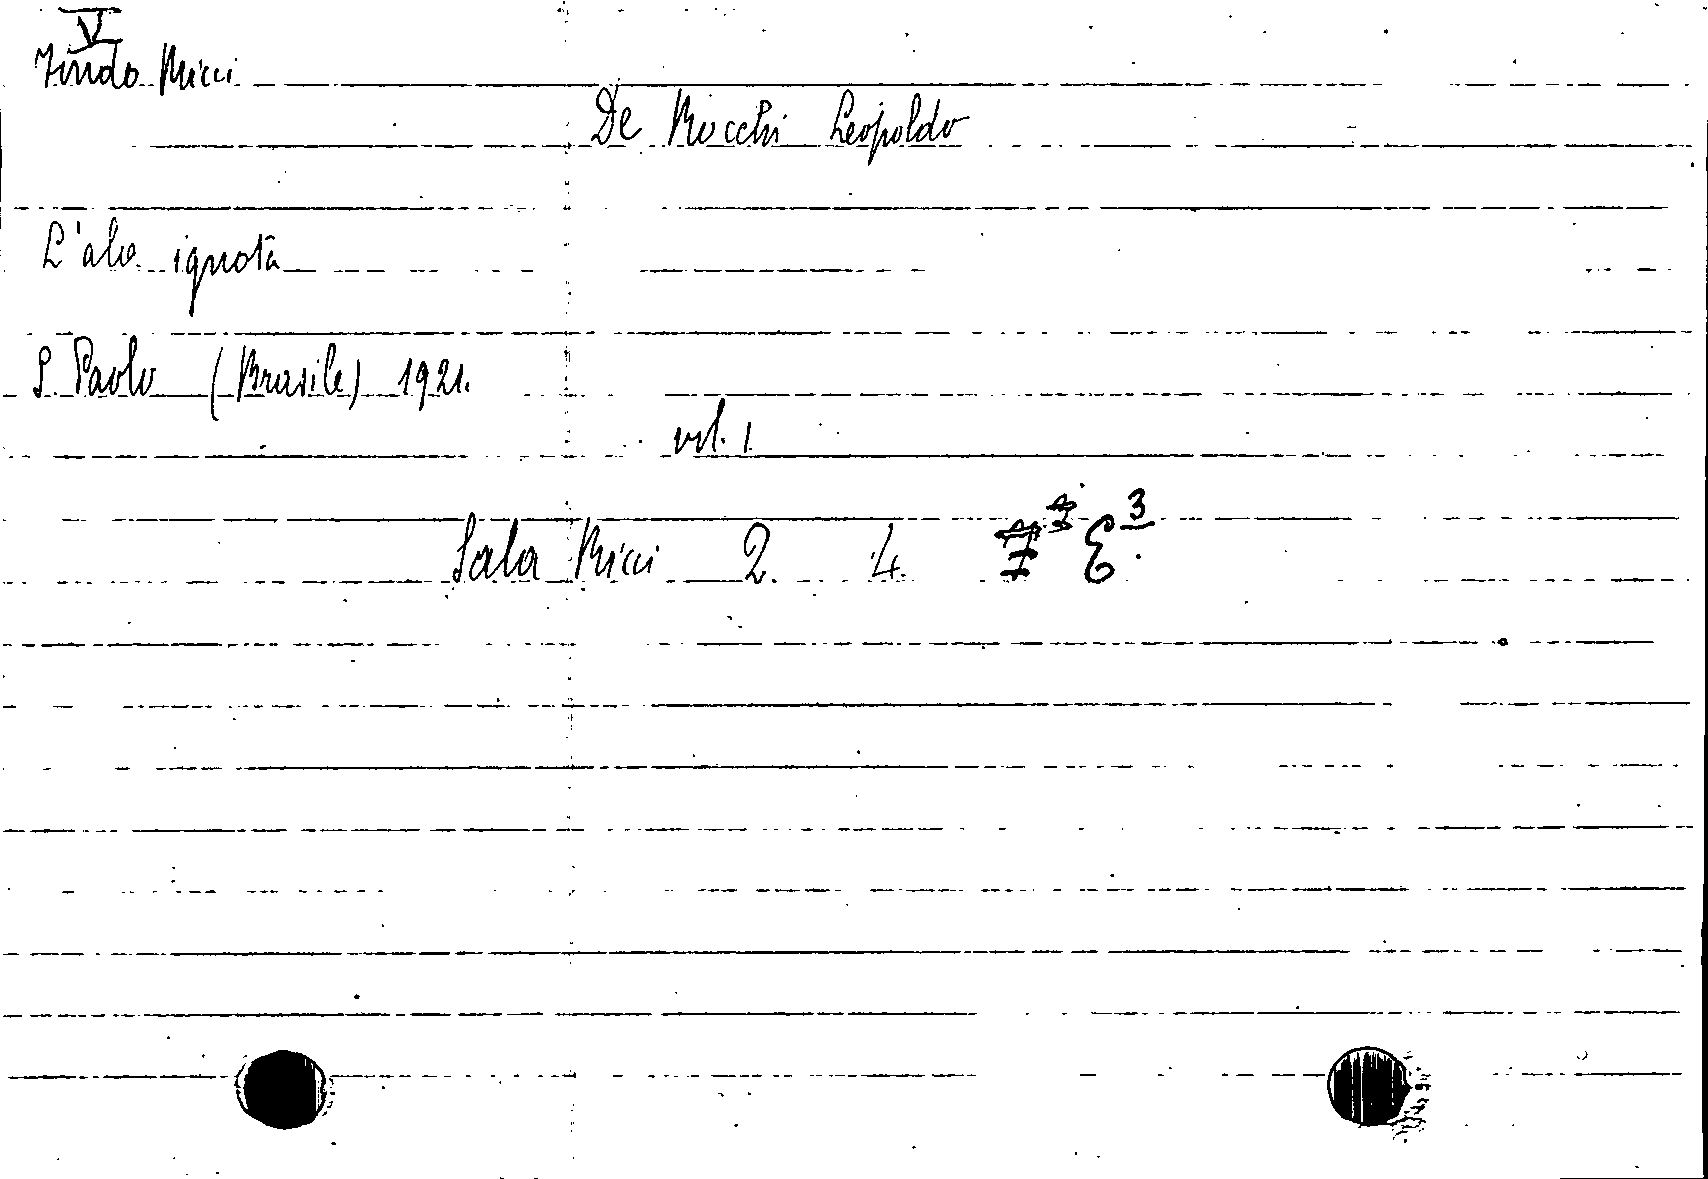 V
Fondo Ricci
De Rocchi Leopoldo
L'ala ignota
S. Paolo (Brasile) 1921.
vol. 1
Sala Ricci 2. 4. E³.